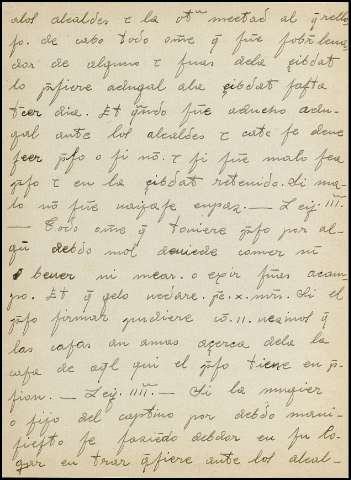 alos alcaldes τ la otª meetad al q̃rello
fo. de cabo todo om̃e q̃ fuẽ fobr̃leua
dor de alguno τ fuas dela çibdat
lo p̃fiere adugal ala çibdat fafta
tc̃er dia. Et q̃ndo fuẽ aducho adu
gal ante los alcaldes τ cate fe deue
feer p̃fo o fi nõ. τ fi fuẽ malo fea
p̃fo τ en la çibdat retenido. Si ma
lo nõ fuẽ vaẏafe enpaz. — Leẏ. III.
— Todo om̃e q̃ touiere p̃fo por al-
gũ debdo nol deuiede comer nĩ
bever ni mear. o exir fuas a cam
po. Et q̃ gelo vedare. pẽ. x. mr̃s. Si el
p̃fo firmar pudiere cõ. II. vezinos q̃
las cafas an amas açerca dela
cafa de aq̃l qui el p̃fo tiene en p̃-
fion. — Leẏ. IIII. — Si la mugier
o fijo del captiuo por debdo mani-
fiefto fe faziẽdo debdor en fu lo-
gar en trar q̃fiere ante los alcal-